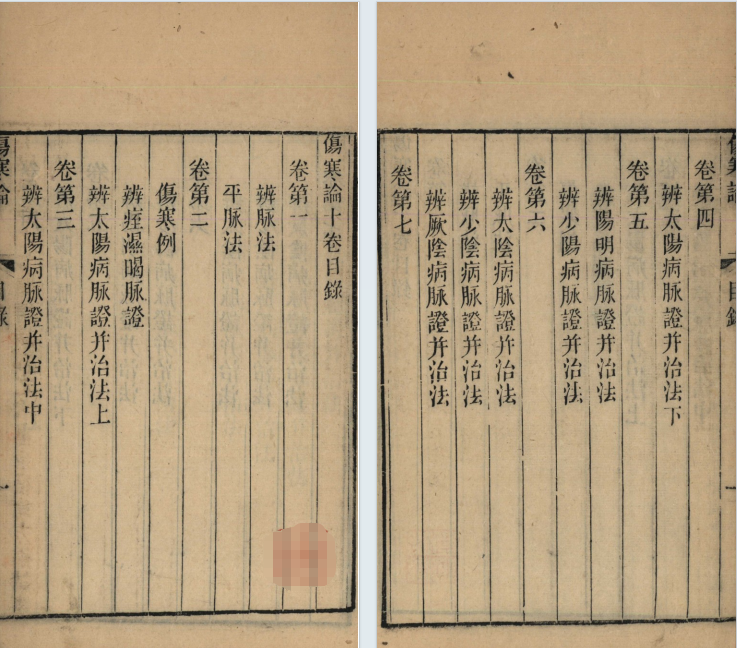 傷寒論十卷目錄
卷第一
辨脉法
平脉法
卷第二
傷寒例
辨痓濕暍脉證
辨太陽病脉證并治法上
卷第三
辨太陽病脉證并治法中
傷寒論 目錄 一
傷寒論 目錄 一
卷第四
辨太陽病脉證并治法下
卷第五
辨陽明病脉證并治法
辨少陽病脉證并治法
卷第六
辨太陰病脉證并治法
辨少陰病脉證并治法
辨厥陰病脉證并治法
卷第七